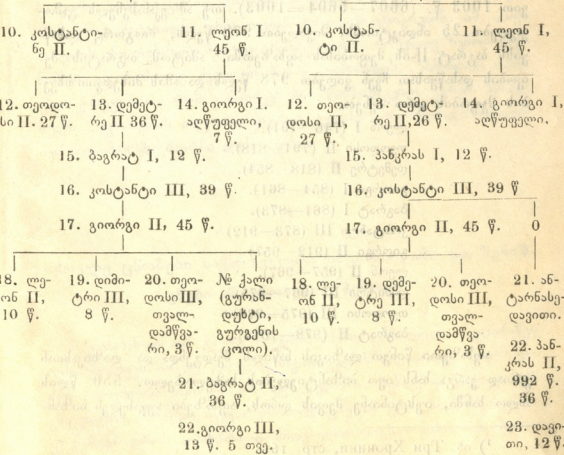 10. კოსტანტი-
ნე II.
11. ლეონ I
45 წ.
12. თეოდო-
სი II. 27 წ.
13. დემეტ-
რე II 36 წ.
14. გიორგი I.
აღწუფელი,
7 წ.
15. ბაგრატ I, 12 წ.
16. კოსტანტი III, 39 წ.
17. გიორგი II, 45 წ.
18. ლე-
ონ II,
10 წ.
19. დიმი-
ტრი III,
8 წ.
20. თეო-
დოსი III,
თვალ-
დამწვა-
რი, 3 წ.
№ ქალი
(გურან-
დუხტი,
გურგენის
ცოლი).
21. ბაგრატ II,
36 წ.
22. გიორგი III,
13 წ. 5 თვე.
10. კოსტან-
ტი II.
11. ლეონ I,
45 წ.
12. თეო-
დოსი II,
27 წ.
13. დემეტ-
რე II, 26 წ.
14. გიორგი I,
აღწუფელი.
15. პანკრას I, 12 წ.
16. კოსტანტი III, 39 წ
17. გიორგი II, 45 წ.
0
18. ლე-
ონ II,
10 წ.
19. დემე-
ტრე III,
8 წ.
20. თეო-
დოსი III,
თვალ-
დამწვა-
რი, 3 წ.
21. ან-
ტარნასე-
დავითი.
22. პან-
კრას II,
992 წ.
36 წ.
23. დავი-
თი, 12 წ.